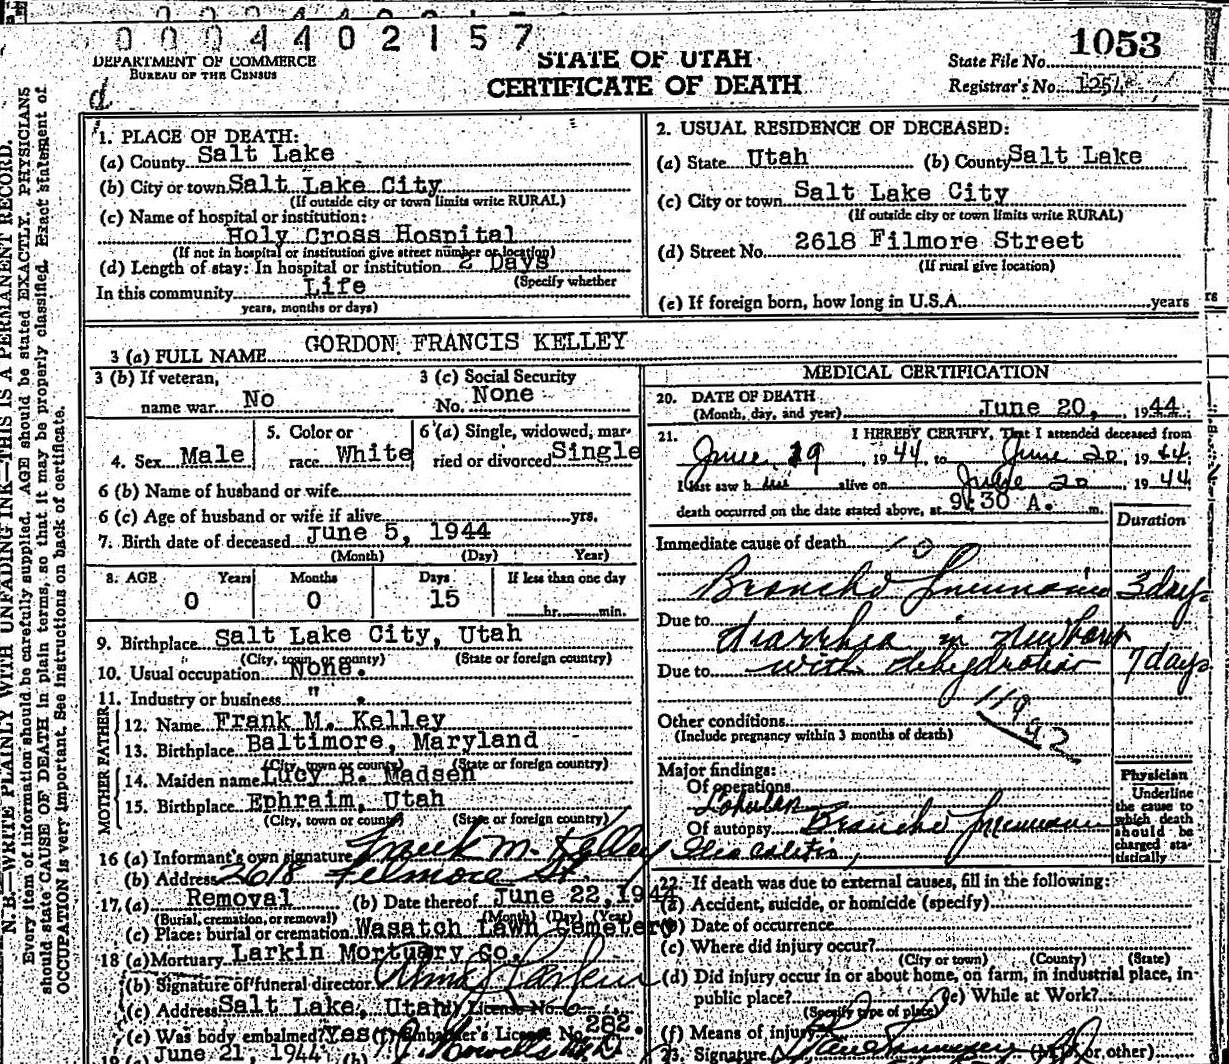 0 0 0 4 4 0 2 1 5 7
DEPARTMENT OF COMMERCE
BUREAU OF THE CENSUS
d
STATE OF UTAH
CERTIFICATE OF DEATH
State File No. 1053
Registrar's No. 1254
N. B.—WRITE PLAINLY WITH UNFADING INK—THIS IS A PERMANENT RECORD.
Every item of information should be carefully supplied. AGE should be stated EXACTLY. PHYSICIANS
should state CAUSE OF DEATH in plain terms, so that it may be properly classified. Exact statement of
OCCUPATION is very important. See instructions on back of certificate.
1. PLACE OF DEATH:
(a) County Salt Lake
(b) City or town Salt Lake City
(If outside city or town limits write RURAL)
(c) Name of hospital or institution:
Holy Cross Hospital
(If not in hospital or institution give street number or location)
(d) Length of stay: In hospital or institution 2 Days
(Specify whether
In this community Life
years, months or days)
2. USUAL RESIDENCE OF DECEASED:
(a) State Utah (b) County Salt Lake
(c) City or town Salt Lake City
(If outside city or town limits write RURAL)
(d) Street No. 2618 Filmore Street
(If rural give location)
(e) If foreign born, how long in U.S.A. years
3 (a) FULL NAME GORDON FRANCIS KELLEY
3 (b) If veteran,
name war No
3 (c) Social Security
No. None
4. Sex Male
5. Color or
race White
6 (a) Single, widowed, mar-
ried or divorced Single
6 (b) Name of husband or wife
6 (c) Age of husband or wife if alive yrs.
7. Birth date of deceased June 5, 1944
(Month) (Day) Year)
8. AGE Years Months Days If less than one day
0 0 15 hr. min.
9. Birthplace Salt Lake City, Utah
(City, town, or county) (State or foreign country)
10. Usual occupation None.
11. Industry or business " .
FATHER
12. Name Frank M. Kelley
13. Birthplace Baltimore, Maryland
(City, town or county) (State or foreign country)
MOTHER
14. Maiden name Lucy B. Madsen
15. Birthplace Ephraim, Utah
(City, town or county) (State or foreign country)
16 (a) Informant's own signature Frank M. Kelley
(b) Address 2618 Filmore St
17. (a) Removal (b) Date thereof June 22, 1944
(Burial, cremation, or removal) (Month) (Day) (Year)
(c) Place: burial or cremation Wasatch Lawn Cemetery
18 (a) Mortuary Larkin Mortuary Co.
(b) Signature of funeral director Larkin
(c) Address Salt Lake, Utah License No.
(e) Was body embalmed? Yes (f) Embalmer's License No. 282.
June 21, 1944 (b)
MEDICAL CERTIFICATION
20. DATE OF DEATH
(Month, day, and year) June 20, 1944
21. I HEREBY CERTIFY, That I attended deceased from
June 19, 1944 to June 20, 1944
I last saw h alive on June 20 1944
death occurred on the date stated above, at 9:30 A. m.
Duration
Immediate cause of death
Broncho Pneumonia 3 days
Due to diarrhea in newborn
Due to with dehydration 7 days
119
92
Other conditions
(Include pregnancy within 3 months of death)
Major findings:
Of operations
Lobular
Of autopsy Broncho Pneumonia
Ileocolitis,
Physician
Underline
the cause to
which death
should be
charged sta-
tistically
22. If death was due to external causes, fill in the following:
(a) Accident, suicide, or homicide (specify)
(b) Date of occurrence
(c) Where did injury occur?
(City or town) (County) (State)
(d) Did injury occur in or about home, on farm, in industrial place, in
public place? (e) While at Work?
(Specify type of place)
(f) Means of injury
23. Signature (M. D. or other)